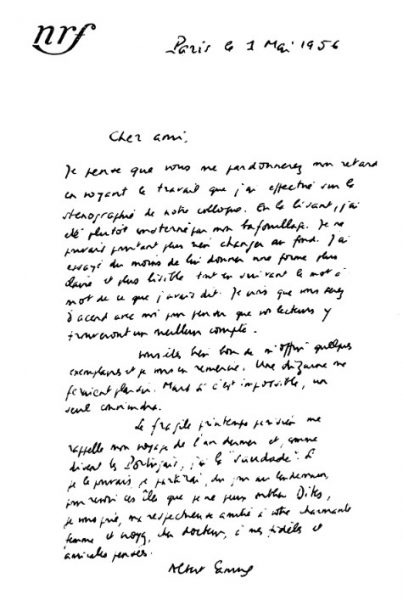 nrf
Paris le 1 Mai 1956
Cher ami,
Je pense que vous me pardonnerez mon retard
en voyant le travail que j'ai effectué sur le
sténographié de notre colloque. En le lisant, j'ai
été plutôt consterné par mon bafouillage. Je ne
pouvais pourtant plus rien changer au fond. J'ai
essayé du moins de lui donner une forme plus
claire et plus lisible tout en suivant le mot à
mot de ce que j'avais dit. Je crois que vous serez
d'accord avec moi pour penser que vos lecteurs y
trouveront un meilleur compte.
Vous êtes bien bon de m'offrir quelques
exemplaires et je vous en remercie. Une dizaine me
feraient plaisir. Mais si c'est impossible, un
seul conviendra.
Le fragile printemps parisien me
rappelle mon voyage de l'an dernier et, comme
disent les Portugais, j'ai la "saudade". Si
je le pouvais je partirai, du jour au lendemain,
pour revoir ces îles que je ne peux oublier. Dites,
je vous prie, ma respectueuse amitié à votre charmante
femme et croyez, cher docteur, à mes fidèles et
amicales pensées.
Albert Camus